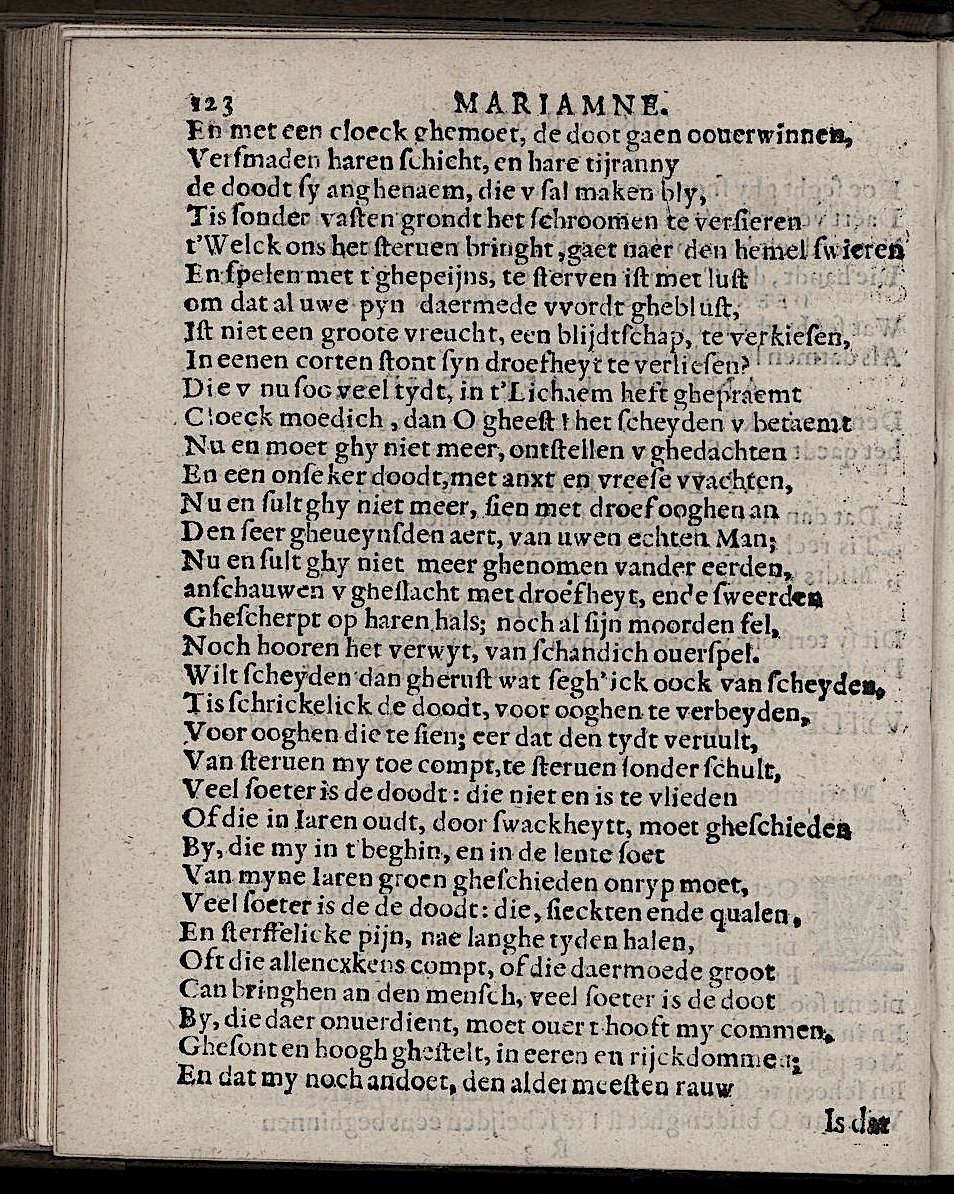 123 MARIAMNE.
En met een cloeck ghemoet, de doot gaen oouerwinnen,
Verſmaden haren ſchicht, en hare tijranny
de doodt ſy anghenaem, die v ſal maken bly,
Tis ſonder vaſten grondt het ſchroomen te verſieren
t'Welck ons het ſteruen bringht, gaet naer den hemel ſwieren
En ſpelen met t'ghepeijns, te ſterven iſt met luſt
om dat al uwe pyn daermede vvordt ghebluſt,
Iſt niet een groote vreucht, een blijdtſchap, te verkieſen,
In eenen corten ſtont ſyn droefheyt te verlieſen?
Die v nu ſoo veel tydt, in t'Lichaem heft ghepraemt
Cloeck moedich, dan O gheeſt t het ſcheyden v betaemt
Nu en moet ghy niet meer, ontſtellen v ghedachten
En een onſeker doodt, met anxt en vreeſe vvachten,
Nu en ſult ghy niet meer, ſien met droef ooghen an
Den ſeer gheueynſden aert, van uwen echten Man;
Nu en ſult ghy niet meer ghenomen vander eerden,
anſchauwen v gheſlacht met droefheyt, ende ſweerden
Gheſcherpt op haren hals; noch al ſijn moorden fel,
Noch hooren het verwyt, van ſchandich ouerſpel.
Wilt ſcheyden dan gheruſt wat ſegh'ick oock van ſcheyden,
Tis ſchrickelick de doodt, voor ooghen te verbeyden,
Voor ooghen die te ſien; eer dat den tydt veruult,
Van ſteruen my toe compt, te ſteruen ſonder ſchult,
Veel ſoeter is de doodt: die niet en is te vlieden
Of die in Iaren oudt, door ſwackheytt, moet gheſchieden
By, die my in t'beghin, en in de lente ſoet
Van myne Iaren groen gheſchieden onryp moet,
Veel ſoeter is de de doodt: die, ſieckten ende qualen,
En ſterffelicke pijn, nae langhe tyden halen,
Oft die allencxkens compt, of die daermoede groot
Can bringhen an den menſch, veel ſoeter is de doot
By, die daer onuerdient, moet ouer t hooft my commen,
Gheſont en hoogh gheſtelt, in eeren en rijckdommen;
En dat my noch andoet, den aldermeeſten rauw
Is dat